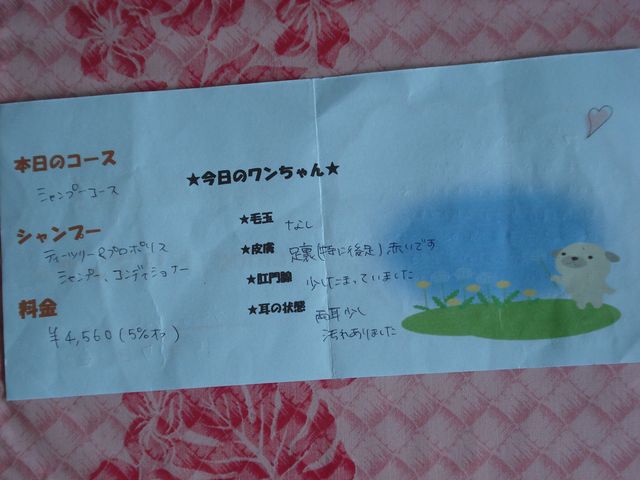 本日のコース
シャンプーコース
シャンプー
ティーツリー&プロポリス
シャンプー、コンディショナー
料金
¥4,560(5%オフ)
★今日のワンちゃん★
★毛玉 なし
★皮膚 足裏(特に後足)赤いです
★肛門腺 少したまっていました
★耳の状態 両耳少し
汚れありました